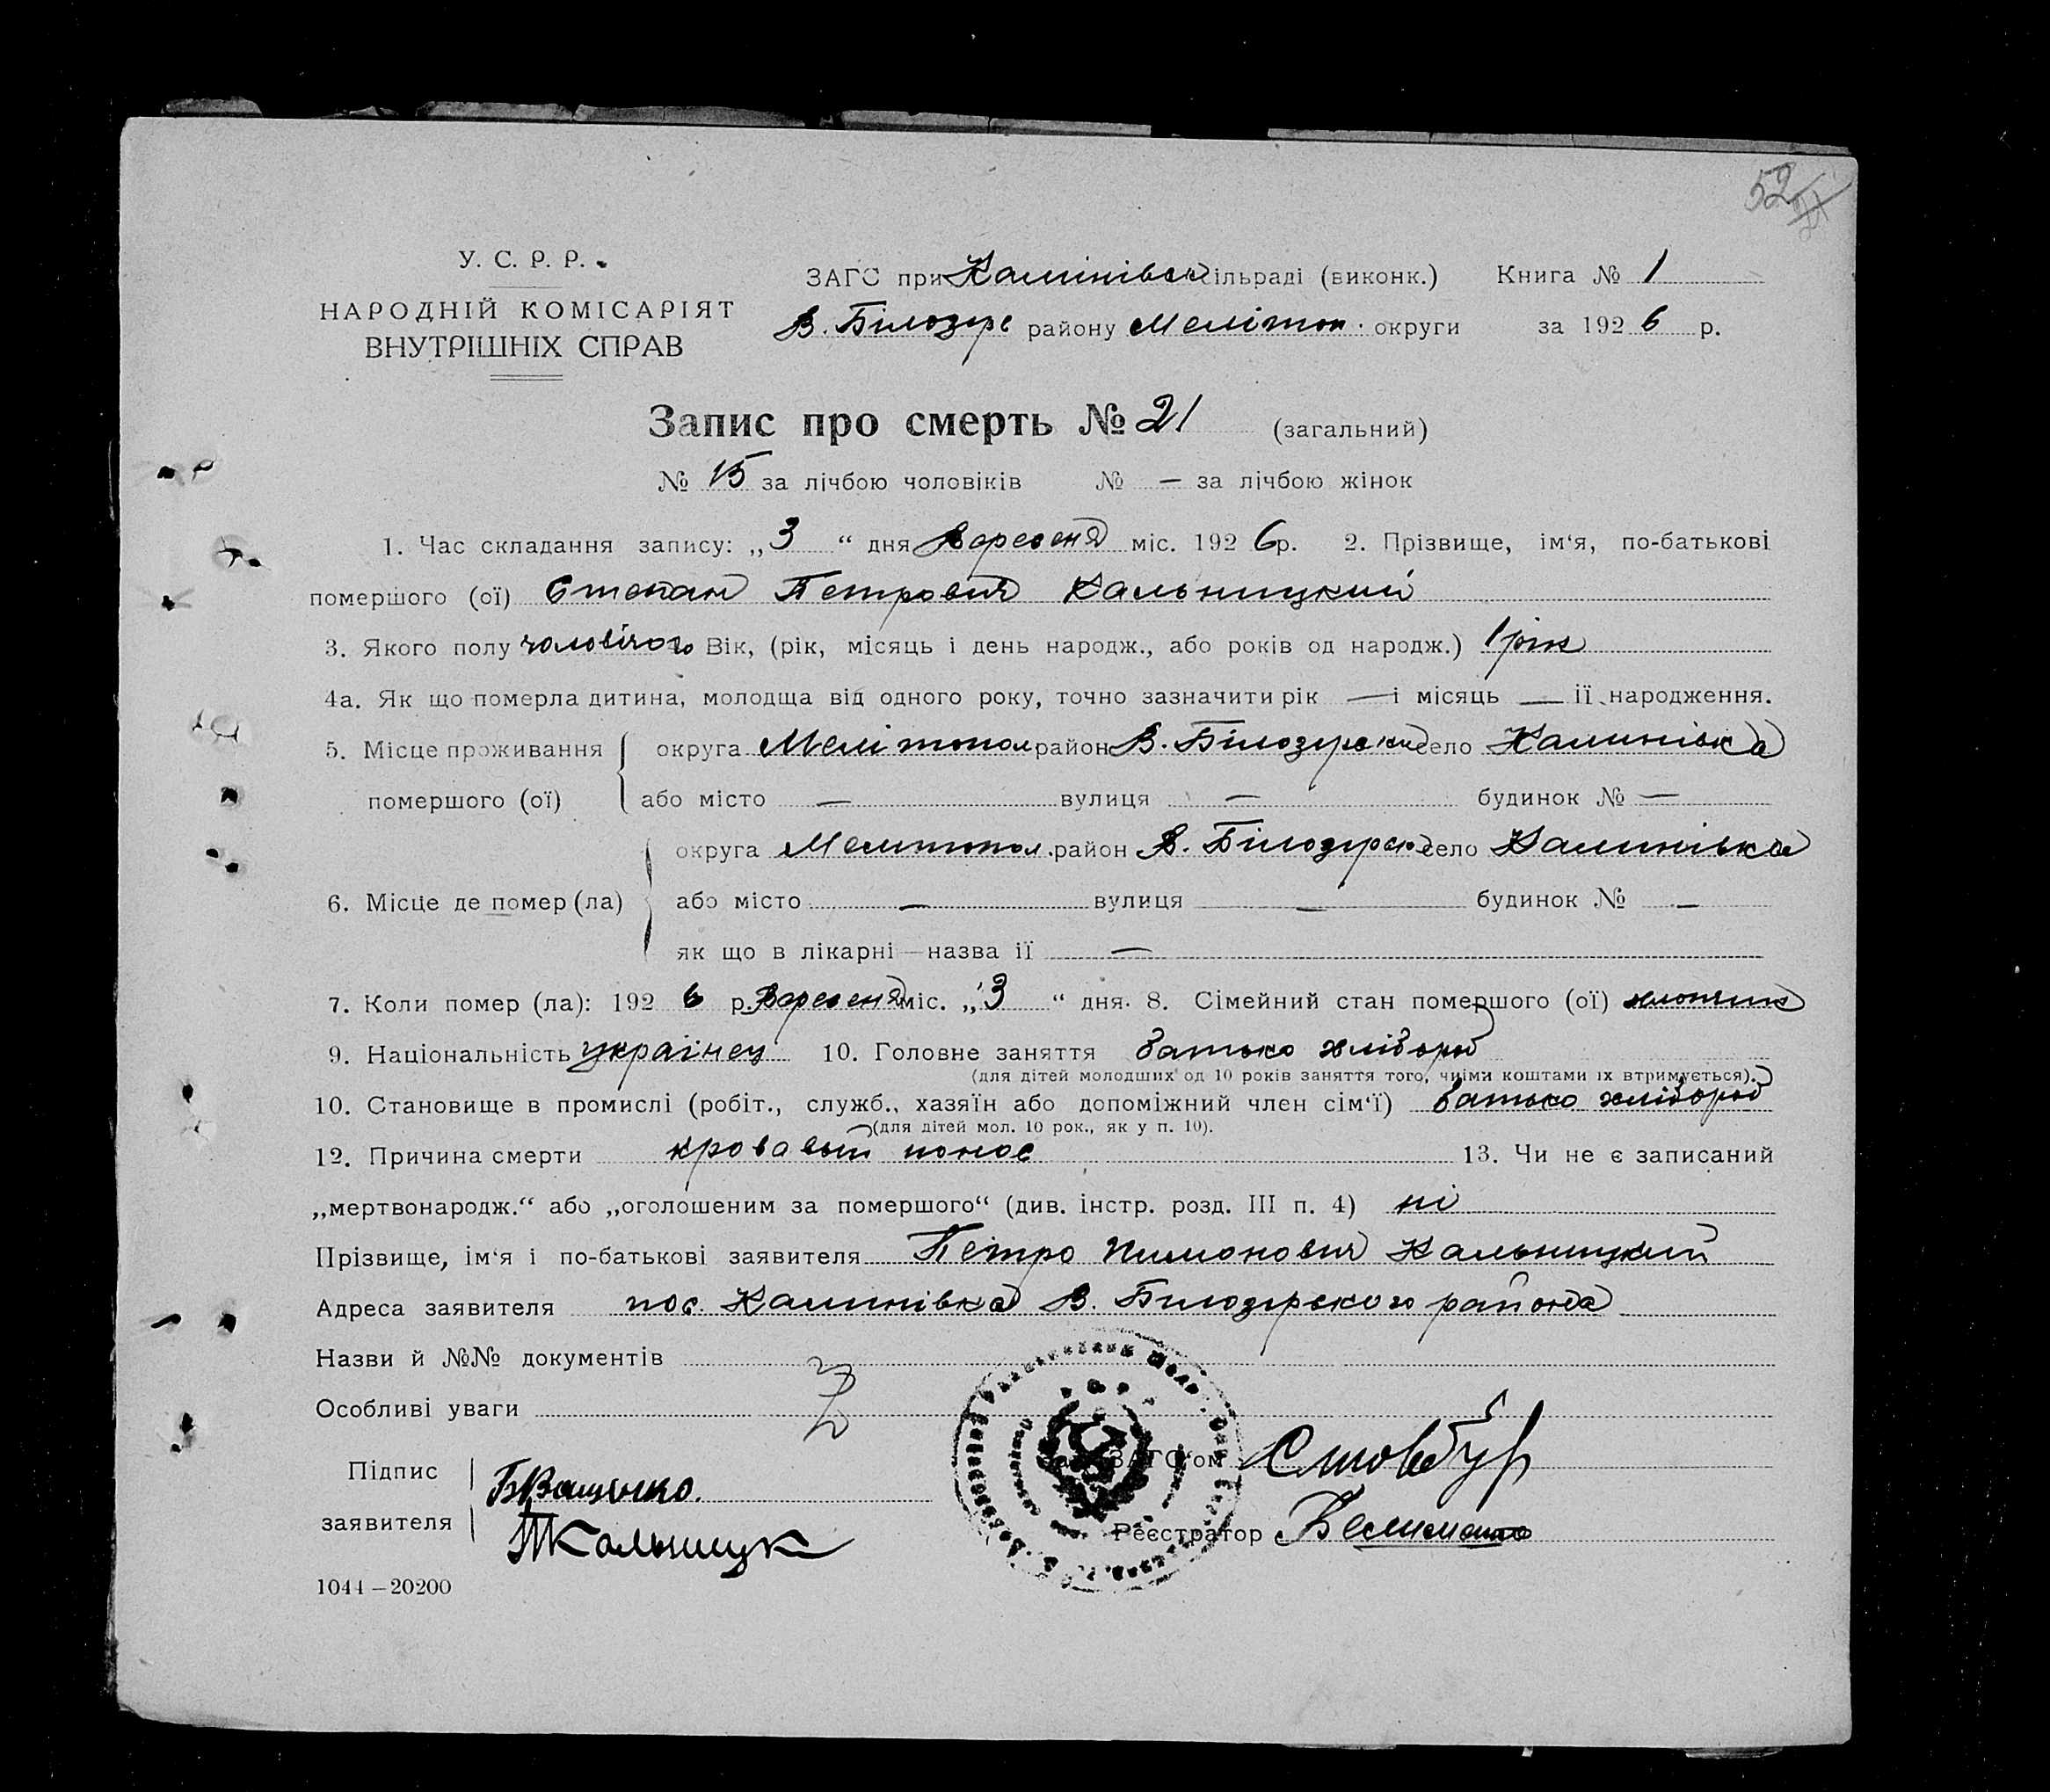 52
У. С. Р. Р.
НАРОДНІЙ КОМІСАРІЯТ
ВНУТРІШНІХ СПРАВ
ЗАГС при Калинівск сільраді (виконк.) Книга № 1
В. Білозерс району Мелітоп. округи за 1926 р.
Запис про смерть № 21 (загальний)
№ 15 за лічбою чоловіків № — за лічбою жінок
1. Час складання запису: „3“ дня Вересеня міс. 1926р. 2. Прізвище, ім‘я, по-батькові
помершого (ої) Степан Петрович Кальницкий
3. Якого полу чоловічого Вік, (рік, місяць і день народж., або років од народж.) 1 рік
4а. Як що померла дитина, молодща від одного року, точно зазначити рік — і місяць — ії народження.
5. Місце проживання округа Мелітопол район В. Білозерски село Калинівка
помершого (ої) або місто — вулиця — будинок № —
округа Мелитопол. район В. Білозерск село Калинівка
6. Місце де помер (ла) або місто — вулиця — будинок № —
як що в лікарні — назва ії —
7. Коли помер (ла): 1926 р. Вересеня міс. „3“ дня. 8. Сімейний стан помершого (ої) хлопчик
9. Національність українец 10. Головне заняття батько хлібороб
(для дітей молодших од 10 років заняття того, чиїми коштами їх втримується).
10. Становище в промислі (робіт., служб., хазяїн або допоміжний член сім‘ї) батько хлібороб
(для дітей мол. 10 рок., як у п. 10).
12. Причина смерти кровавый понос 13. Чи не є записаний
„мертвонародж.“ або „оголошеним за помершого“ (див. інстр. розд. III п. 4) ні
Прізвище, ім‘я і по-батькові заявителя Петро Пимонович Кальницкий
Адреса заявителя пос. Калинівка В. Білозерского района
Назви й №№ документів
Особливі уваги
Підпис БВащенко. ЗАГС‘ом Стовбур
заявителя ПКальницк Реєстратор
1044—20200